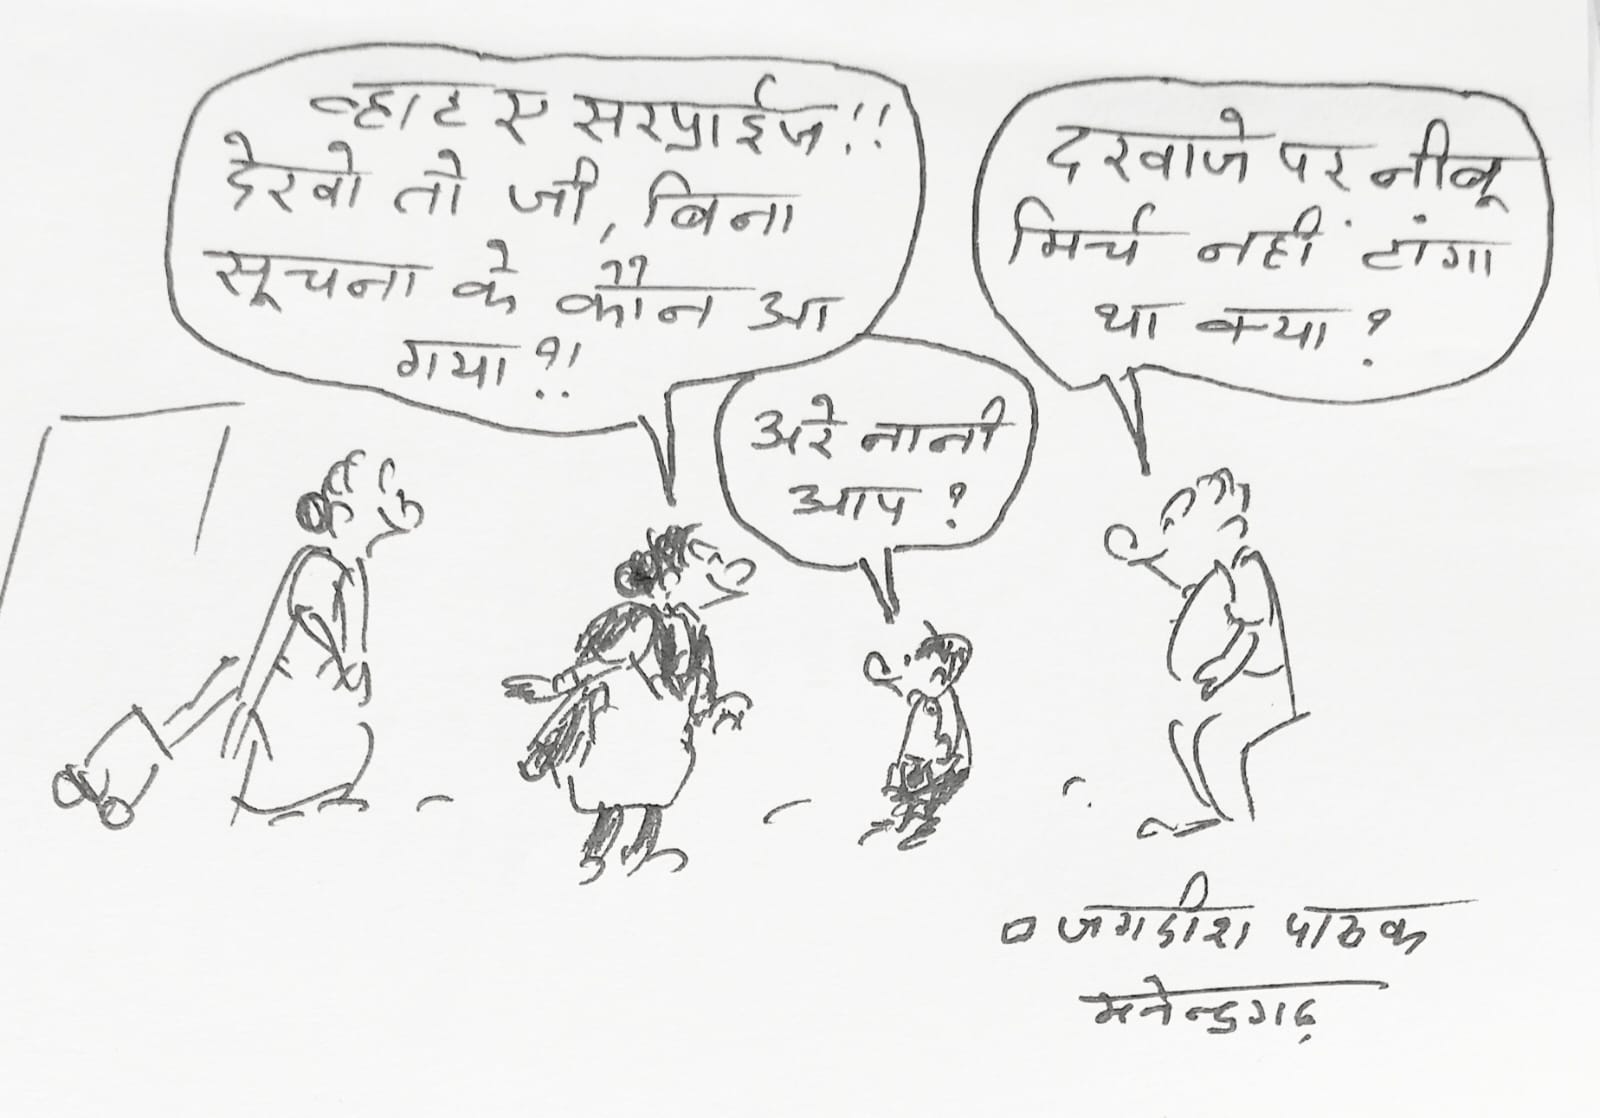 व्हाट ए सरप्राईज!!
देखो तो जी, बिना
सूचना के कौन आ
गया?!
अरे नानी
आप?
दरवाजे पर नीबू
मिर्च नहीं टांगा
था क्या?
जगदीश पाठक
मनेन्द्रगढ़